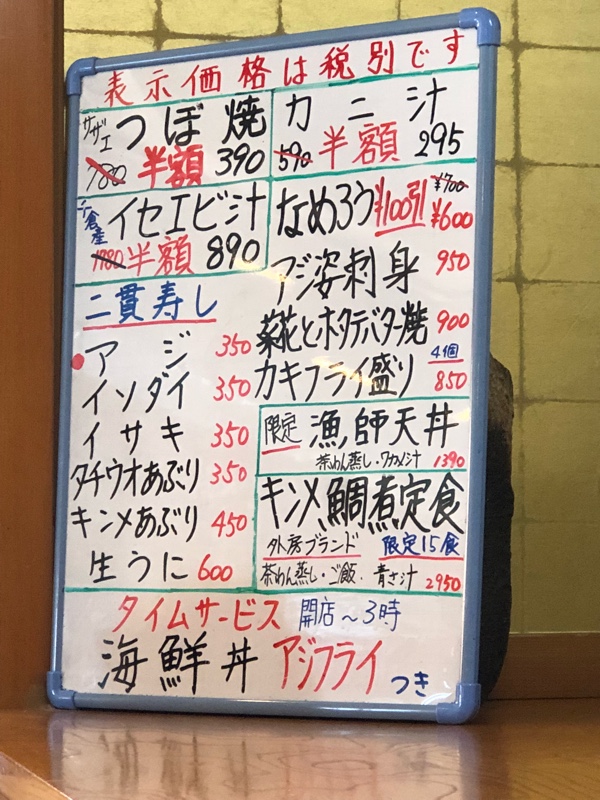 表示価格は税別です
サザエ つぼ焼
780 半額 390
カニ汁
590 半額 295
千倉産 イセエビ汁
1780 半額 890
なめろう ¥100引 ¥700 ¥600
アジ姿刺身 950
菜花とホタテバター焼 900
カキフライ盛り 4個 850
二貫寿し
アジ 350
イソダイ 350
イサキ 350
タチウオあぶり 350
キンメあぶり 450
生うに 600
限定 漁師天丼
茶わん蒸し・ワカメ汁 1390
キンメ鯛煮定食
外房ブランド 限定15食
茶わん蒸し・ご飯・青さ汁 2950
タイムサービス 開店～3時
海鮮丼 アジフライ つき